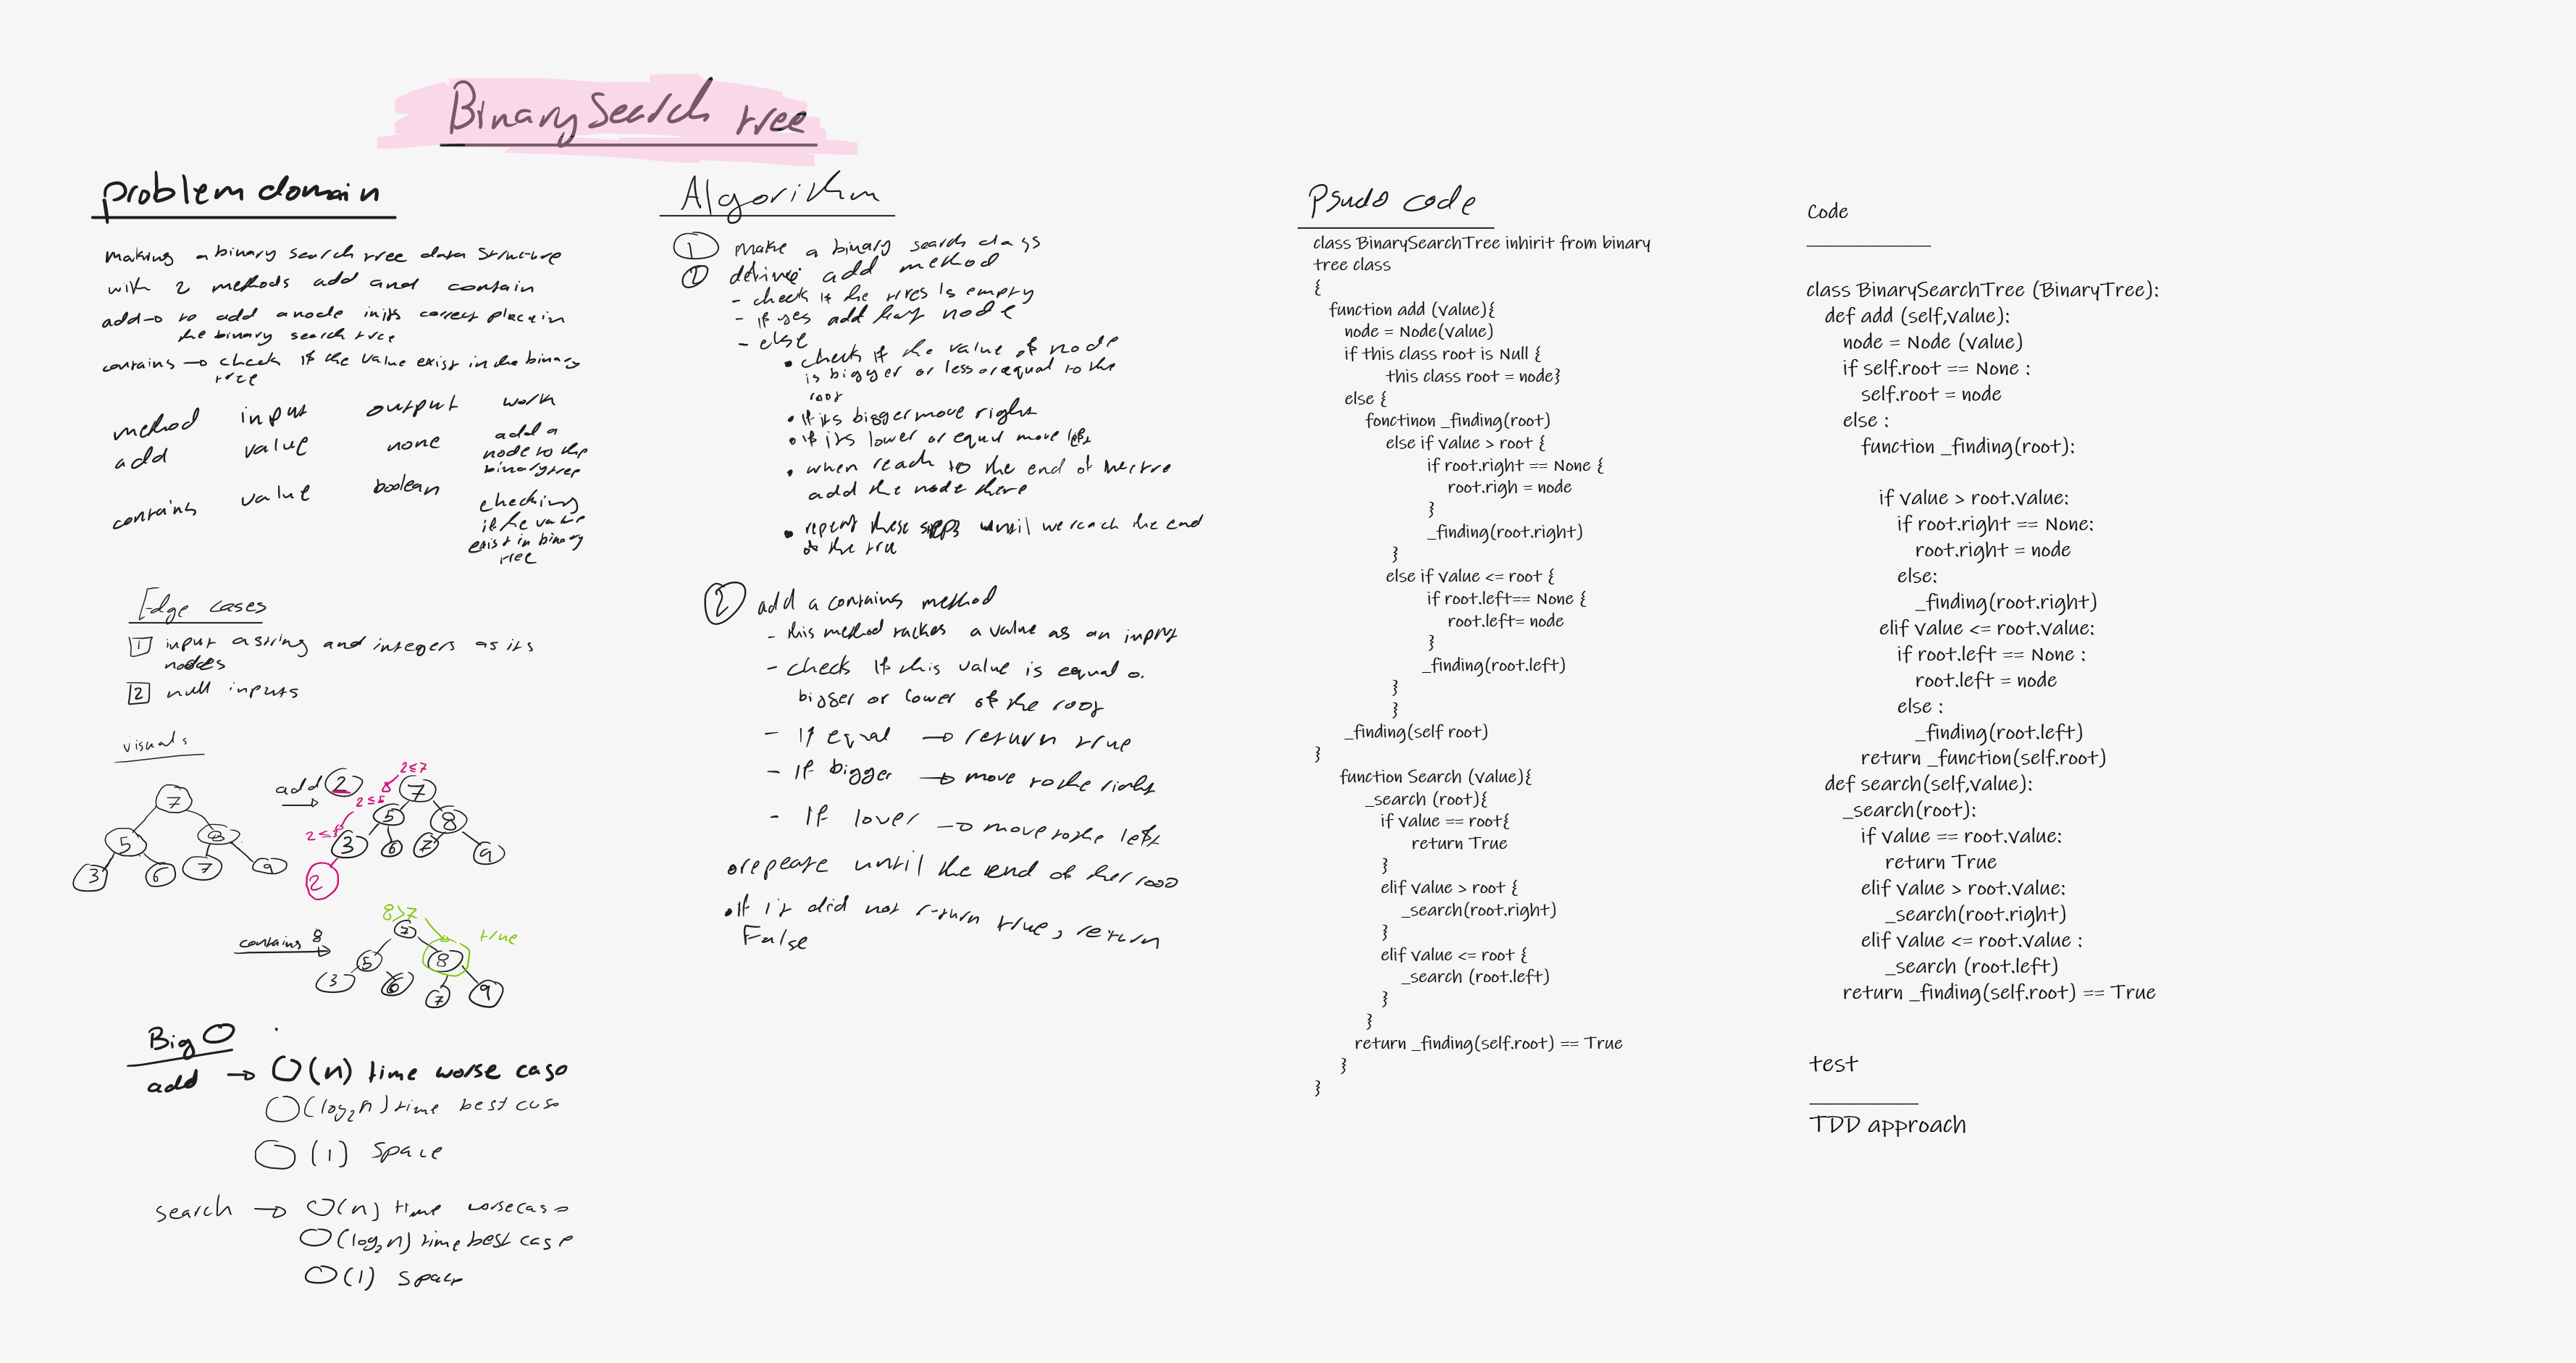 Binary Search tree
problem domain
making a binary search tree data structure
with 2 methods add and contain
add → to add a node in its correct place in
the binary search tree
contains → check if the value exist in the binary
tree
method input output work
add value none add a
node to the
binary tree
contains value boolean checking
if the value
exist in binary
tree
Edge cases
1 input a string and integers as its
nodes
2 null inputs
visuals
7
5 8
3 6 7 9
add 2
2≤7
2≤5
7
5 8
3 6 7 9
2
contains 8
8>7
true
7
5 8
3 6 7 9
Big O
add → O(n) time worse case
O(log₂n) time best case
O(1) space
search → O(n) time worse case
O(log₂n) time best case
O(1) space
Algorithm
1 make a binary search class
add method
- check if the is empty
- if yes add node
- else
• check if the value of node
is bigger or less or equal to the
root
• if its bigger move right
• if its lower or equal move left
• when reach to the end of
add the node there
• repeat these steps until we reach the end
of the
2 add a contains method
- this method a value as an input
- check if this value is equal
bigger or lower of the root
- If equal → return true
- If bigger → move to the right
- If lower → move to the left
• repeate until the end of the
• If it did not return true, return
False
Psudo code
class BinarySearchTree inhirit from binary
tree class
{
function add (value){
node = Node(value)
if this class root is Null {
this class root = node}
else {
fonctinon _finding(root)
else if value > root {
if root.right == None {
root.righ = node
}
_finding(root.right)
}
else if value <= root {
if root.left== None {
root.left= node
}
_finding(root.left)
}
}
_finding(self root)
}
function Search (value){
_search (root){
if value == root{
return True
}
elif value > root {
_search(root.right)
}
elif value <= root {
_search (root.left)
}
}
return _finding(self.root) == True
}
}
Code
class BinarySearchTree (BinaryTree):
def add (self,value):
node = Node (value)
if self.root == None :
self.root = node
else :
function _finding(root):
if value > root.value:
if root.right == None:
root.right = node
else:
_finding(root.right)
elif value <= root.value:
if root.left == None :
root.left = node
else :
_finding(root.left)
return _function(self.root)
def search(self,value):
_search(root):
if value == root.value:
return True
elif value > root.value:
_search(root.right)
elif value <= root.value :
_search (root.left)
return _finding(self.root) == True
test
TDD approach